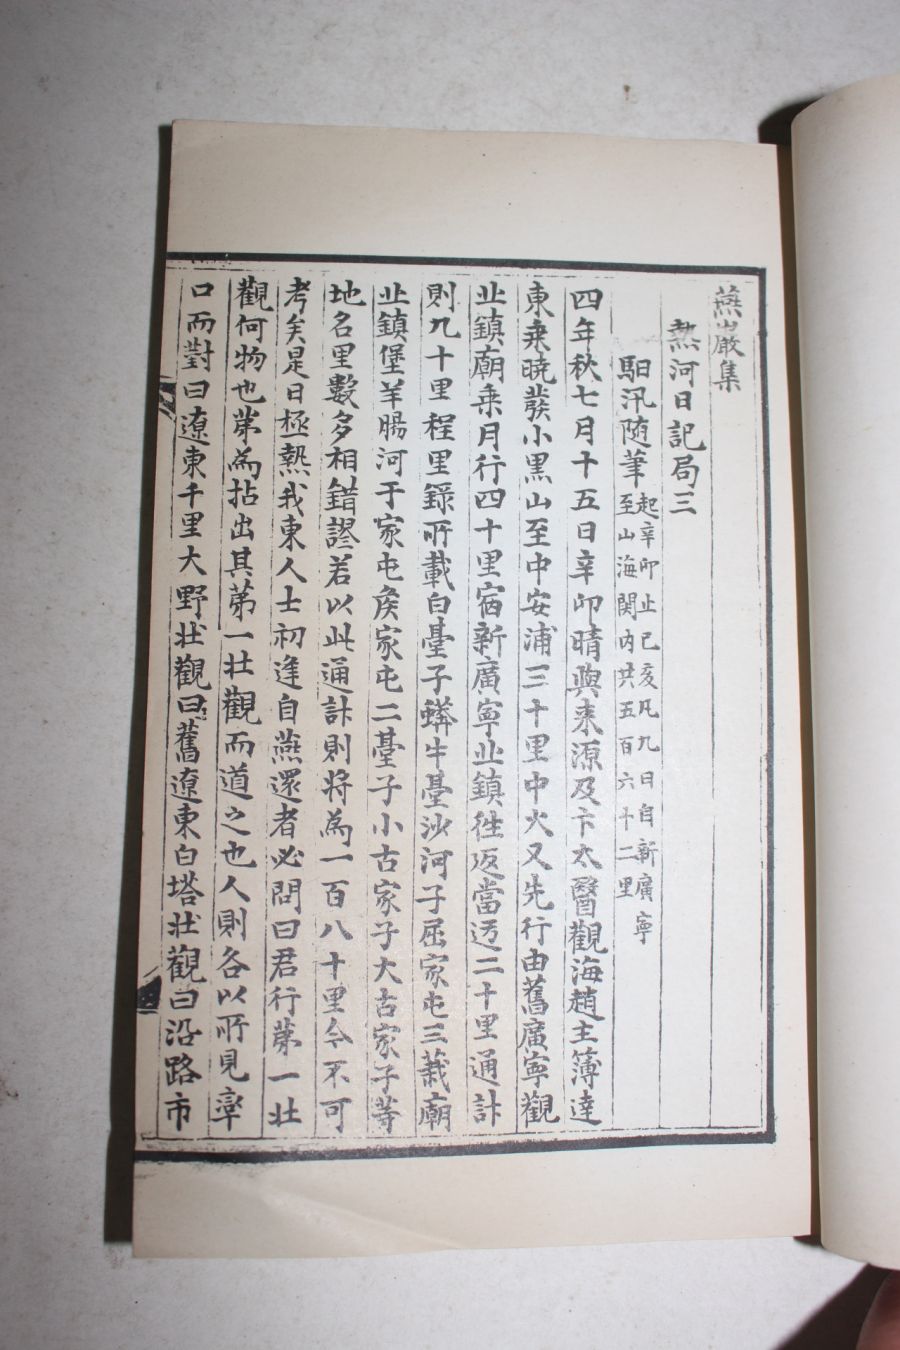 燕巖集
熱河日記局三
馹汛随筆 起辛卯止己亥凡九日自新廣寧
至山海関内共五百六十二里
四年秋七月十五日辛卯晴與来源及卞太醫觀海趙主簿達
東乗暁發小黒山至中安浦三十里中火又先行由舊廣寧觀
北鎮廟乗月行四十里宿新廣寧北鎮徃返當迃二十里通計
則九十里程里録所載白臺子蟒牛臺沙河子屈家屯三義廟
北鎮堡羊膓河于家屯矦家屯二臺子小古家子大古家子等
地名里數多相錯謬若以此通計則将為一百八十里今不可
考矣是日極熱我東人士初逢自燕還者必問曰君行苐一壮
觀何物也苐為拈出其苐一壮觀而道之也人則各以所見率
口而對曰遼東千里大野壮觀曰舊遼東白塔壮觀曰沿路市